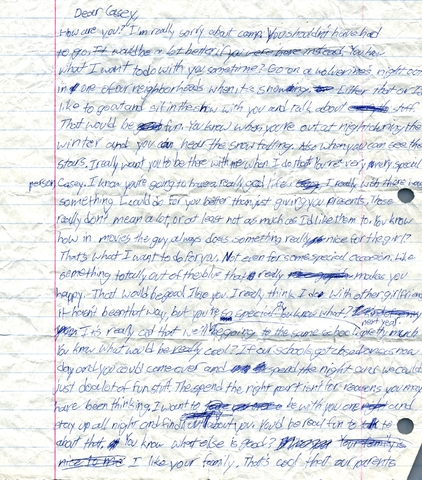 Dear Casey,
How are you? I'm really sorry about camp. You shouldn't have had
to go. It would be a lot better if you were here instead. You know
what I want to do with you sometime? Go on a walk one night
in one of our neighborhoods when it's snowing. Either that or I'd
like to go out and sit in the snow with you and talk about stuff.
That would be fun. You know when you're out at night during the
winter and you can hear the snow falling. Also when you can see the
stars. I really want you to be there with me when I do that. You're very, very special
person, Casey. I know you're going to have a really good life. I really wish there was
something I could do for you better than just giving you presents. Those
really don't mean a lot, or at least not as much as I'd like them to. You know
how in movies the guy always does something really nice for the girl?
That's what I want to do for you. Not even for some special occasion. Like
something totally out of the blue that really makes you
happy. That would be good. I love you I really think I do. With other girlfriends
it hasn't been that way, but you're so special. You know what?
It's really cool that we'll be going to the same school next year.
You know what would be really cool? If our schools got a snow
day and you could come over and spend the night and we could
just do a lot of fun stuff. The spend the night part isn't for reasons you may
have been thinking. I want to be with you and
stay up all night and find out about you. You'd be real fun to talk to
about that. You know what else is good?
I like your family. That's cool that our parents